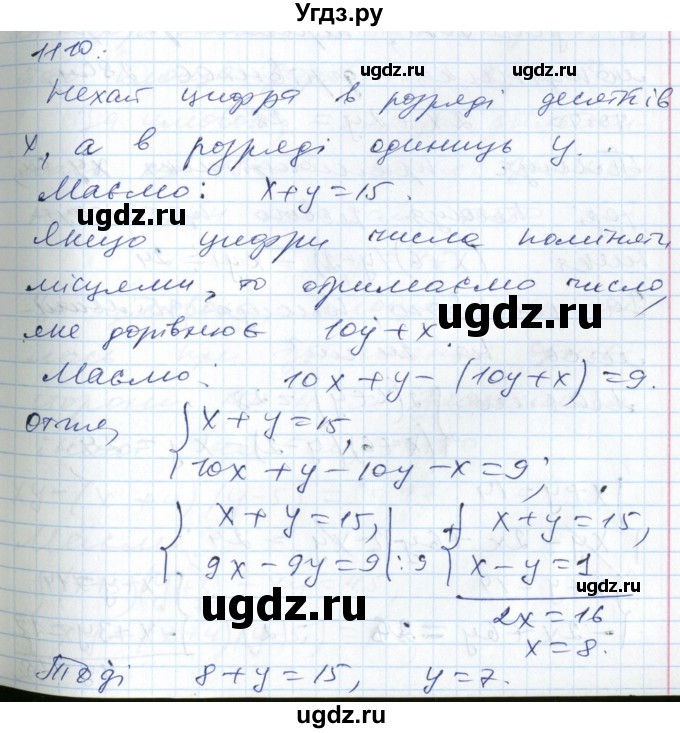 Угдз.ру
1110.
ugdz.ru
ugdz.ru
Нехай цифра в розряді десятків
x, а в розряді одиниць y.
Маємо: x+y=15.
ugdz.ru
ugdz.ru
Якщо цифри числа поміняти
місцями, то отримаємо число,
яке дорівнює 10y+x.
ugdz.ru
Маємо: 10x+y-(10y+x)=9.
Отже, x+y=15,
10x+y-10y-x=9;
x+y=15, x+y=15,
9x-9y=9 |:9 + x-y=1
ugdz.ru
ugdz.ru
2x=16
x=8.
ugdz.ru
Тоді 8+y=15, y=7.
ugdz.ru